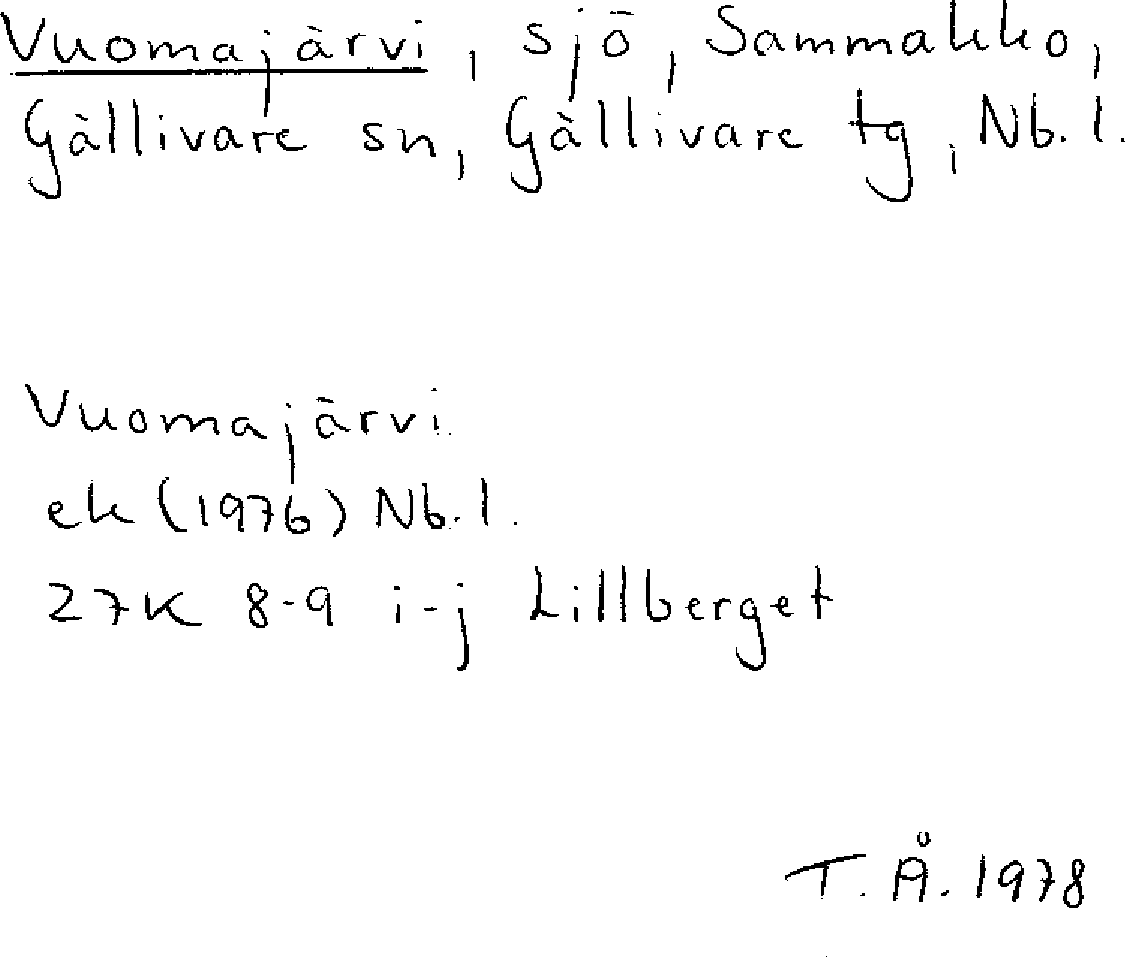 Vuomajärvi, sjö, Sammakko,
Gällivare sn, Gällivare tg, Nb.l.
Vuomajärvi
ek (1976) Nb.l.
27K 8-9 i-j Lillberget
T.Å. 1978